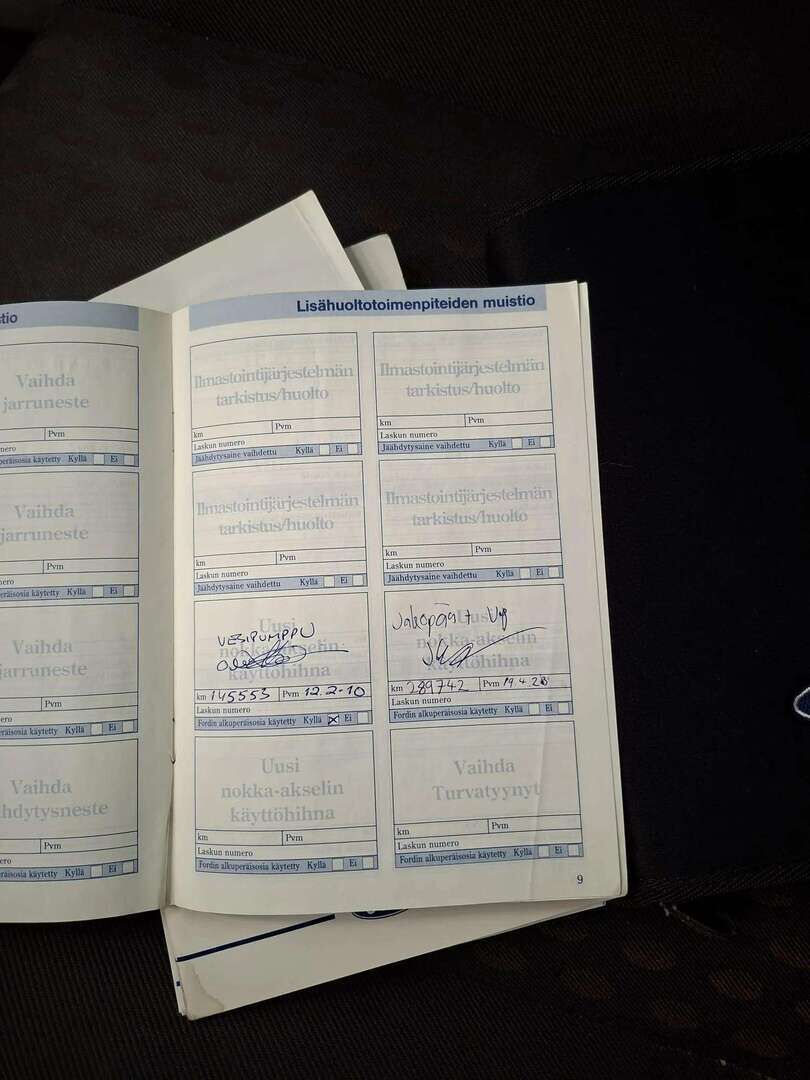 tio
Vaihda
jarruneste
Pvm
nero
peräisosia käytetty Kyllä Ei
Vaihda
jarruneste
Pvm
nero
peräisosia käytetty Kyllä Ei
Vaihda
jarruneste
Pvm
ero
peräisosia käytetty Kyllä Ei
Vaihda
hdytysneste
Pvm
ero
räisosia käytetty Kyllä Ei
Lisähuoltotoimenpiteiden muistio
Ilmastointijärjestelmän
tarkistus/huolto
km Pvm
Laskun numero
Jäähdytysaine vaihdettu Kyllä Ei
Ilmastointijärjestelmän
tarkistus/huolto
km Pvm
Laskun numero
Jäähdytysaine vaihdettu Kyllä Ei
Ilmastointijärjestelmän
tarkistus/huolto
km Pvm
Laskun numero
Jäähdytysaine vaihdettu Kyllä Ei
Ilmastointijärjestelmän
tarkistus/huolto
km Pvm
Laskun numero
Jäähdytysaine vaihdettu Kyllä Ei
Uusi
VESIPUMPPU
nokka-akselin
käyttöhihna
km 145553 Pvm 12.2-10
Laskun numero
Fordin alkuperäisosia käytetty Kyllä Ei
Uusi
Jakopää +
nokka-akselin
käyttöhihna
km 289742 Pvm 19.4.20
Laskun numero
Fordin alkuperäisosia käytetty Kyllä Ei
Uusi
nokka-akselin
käyttöhihna
km Pvm
Laskun numero
Fordin alkuperäisosia käytetty Kyllä Ei
Vaihda
Turvatyynyt
km Pvm
Laskun numero
Fordin alkuperäisosia käytetty Kyllä Ei
9